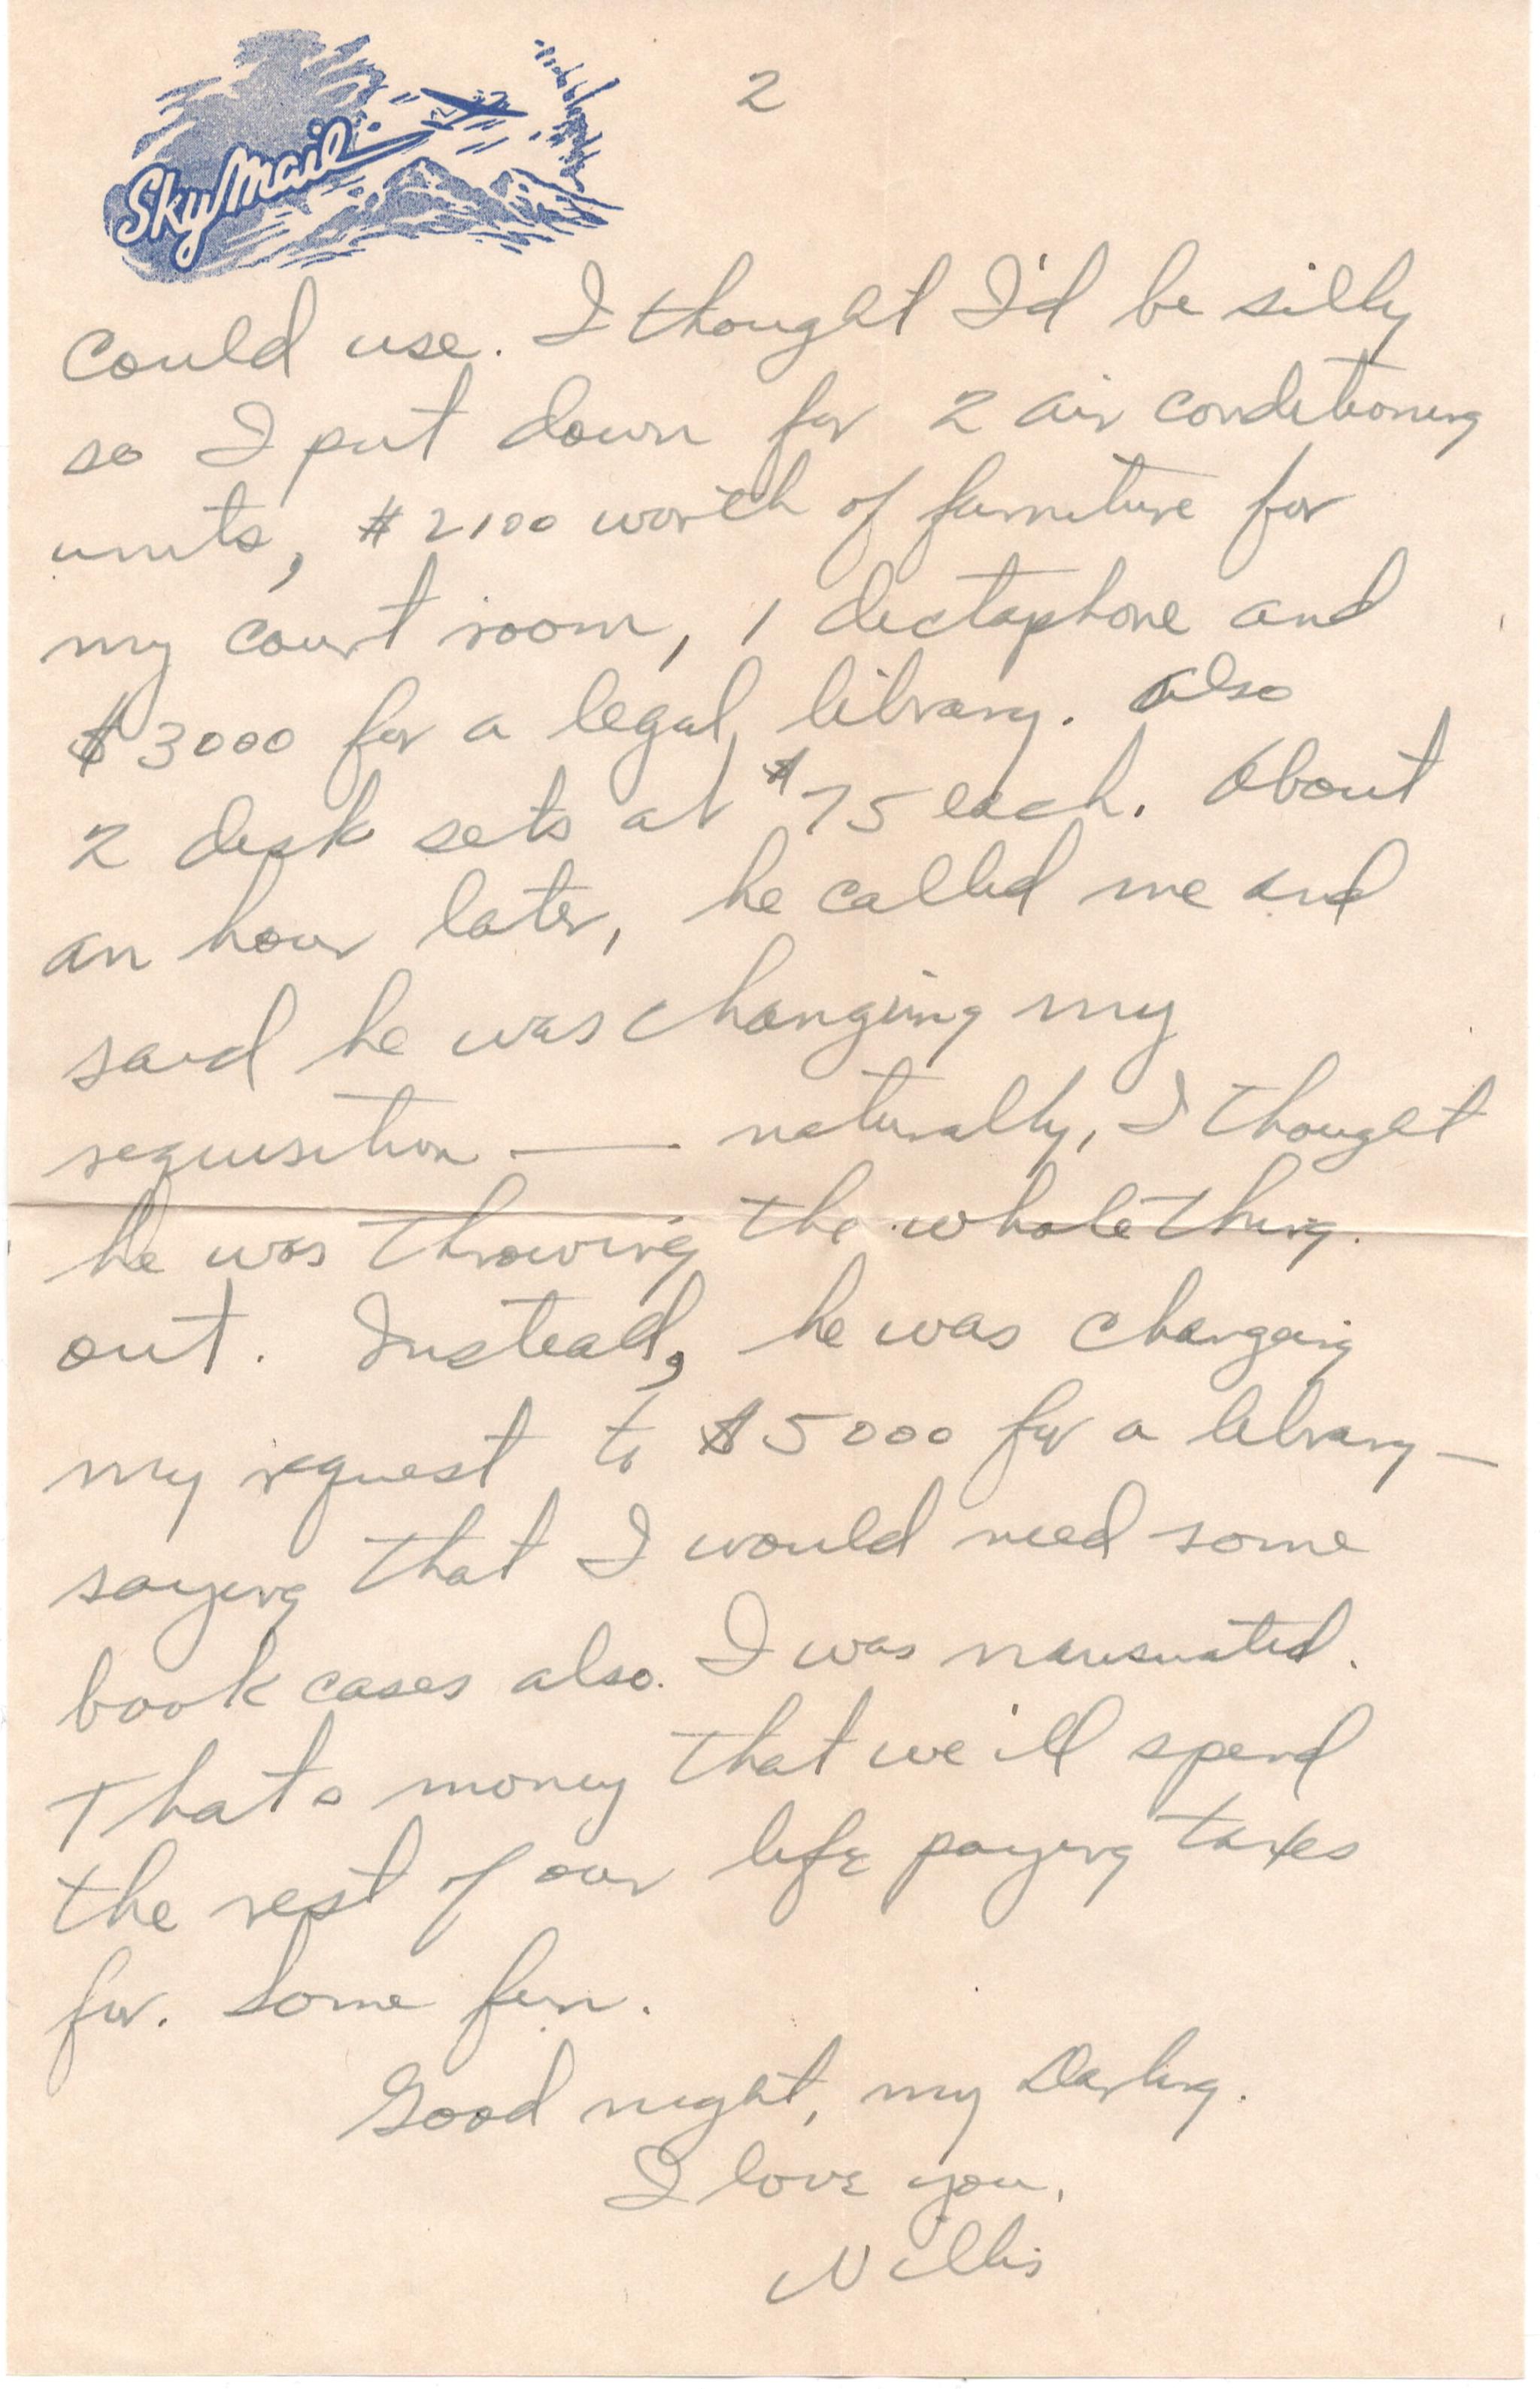 2
SkyMail
could use. I thought I'd be silly
so I put down for 2 air conditioning
units, $2100 worth of furniture for
my court room, 1 dictaphone and
$3000 for a legal library. Also
2 desk sets at $75 each. About
an hour later, he called me and
said he was changing my
requisition — naturally, I thought
he was throwing the whole thing
out. Instead, he was changing
my request to $5000 for a library —
saying that I would need some
book cases also. I was nauseated.
Thats money that we'll spend
the rest of our life paying taxes
for. Some fun.
Good night, my Darling.
I love you,
Willis